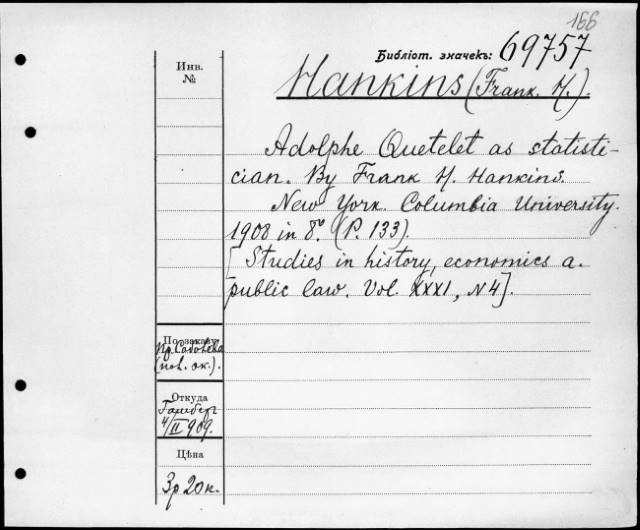 166
Библіот. значекъ: 69757
Инв.
№
Hankins (Frank. H.).
Adolphe Quetelet as statisti-
cian. By Frank H. Hankins.
New York. Columbia University.
1908 in 8º. (P. 133).
[Studies in history, economics a.
public law. Vol. XXXI, N 4].
По заказу
(пов. эк.).
Откуда
4/II 909.
Цѣна
3р. 20к.